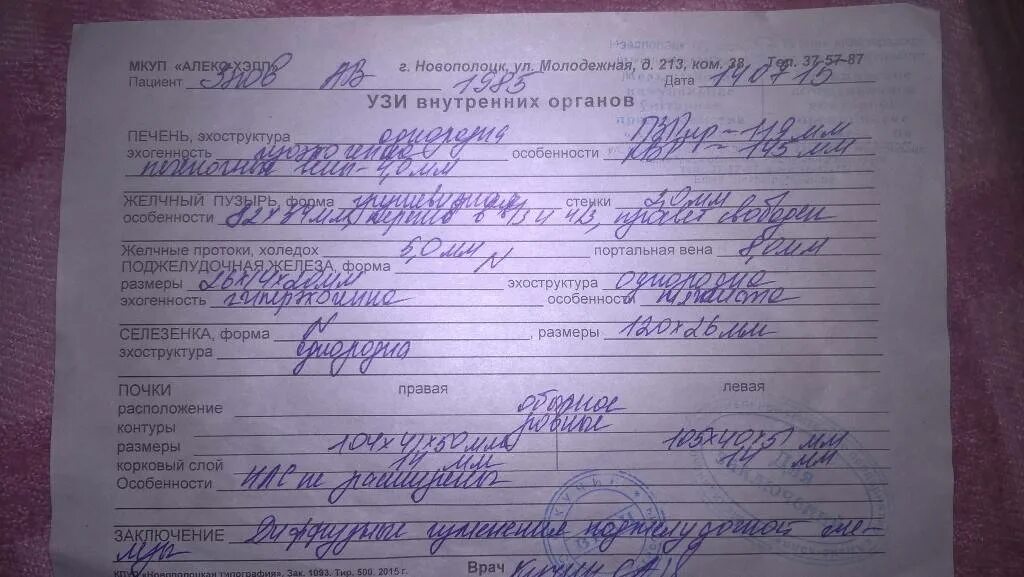 МКУП «АЛЕКО ХЭЛП» г. Новополоцк, ул. Молодежная, д. 213, ком. 38 Тел. 37-57-87
Пациент АВ 1985 Дата 14.07.15
УЗИ внутренних органов
ПЕЧЕНЬ, эхоструктура однородна ПЗРпр - 119 мм
эхогенность изоэхогенна особенности КВР - 145 мм
печеночные вены - 4,0 мм
ЖЕЛЧНЫЙ ПУЗЫРЬ, форма грушевидная стенки 2,0 мм
особенности просвет свободен
Желчные протоки, холедох 5,0 мм портальная вена 8,0 мм
ПОДЖЕЛУДОЧНАЯ ЖЕЛЕЗА, форма N
размеры 26х14х20 мм эхоструктура однородна
эхогенность гиперэхогенна особенности
СЕЛЕЗЕНКА, форма N , размеры 120х26 мм
эхоструктура однородна
ПОЧКИ правая левая
расположение обычное
контуры ровные
размеры 104х41х50 мм 105х40х51 мм
корковый слой 14 мм 14 мм
Особенности ЧЛС не расширены
ЗАКЛЮЧЕНИЕ Диффузные изменения поджелудочной же-
лезы
КПУП «Новополоцкая типография», Зак. 1093. Тир. 500. 2015 г. Врач